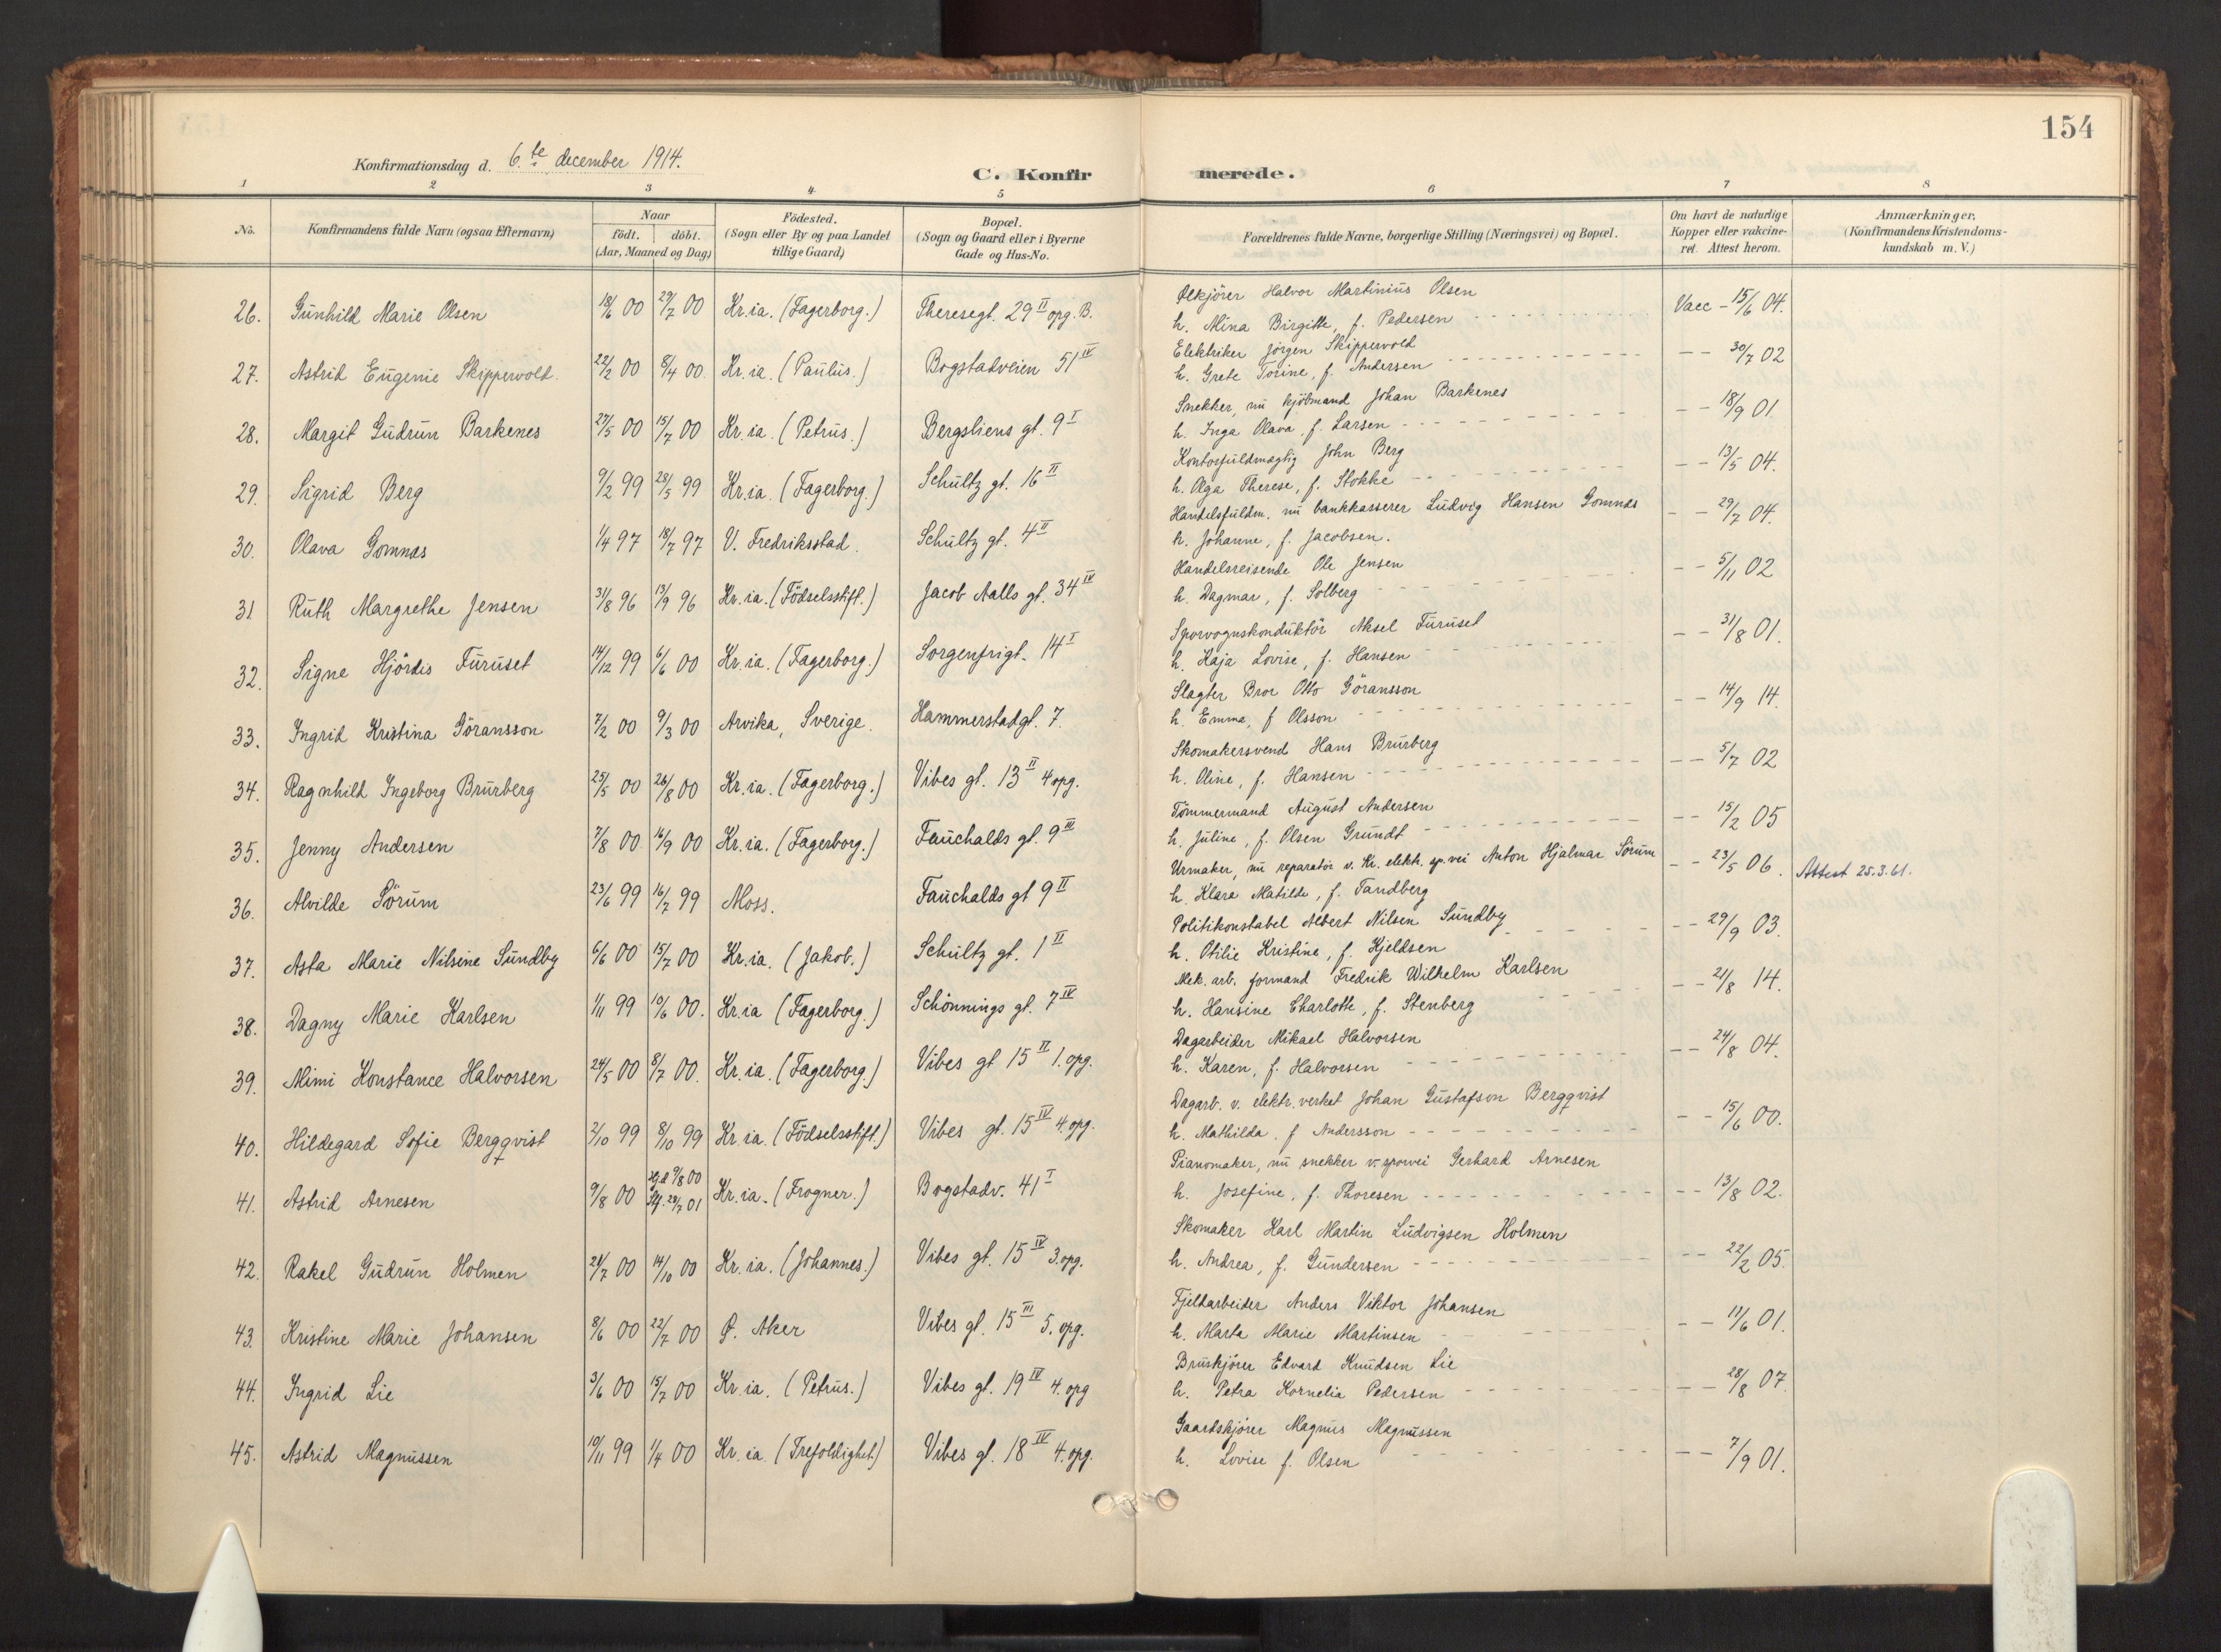 154
Konfirmationsdag d. 6.te december 1914.
C. Konfirmerede.
1 2 3 4 5 6 7 8
No. | Konfirmandens fulde Navn (ogsaa Efternavn) | Naar født. | døbt. (Aar, Maaned og Dag) | Fødested. (Sogn eller By og paa Landet tillige Gaard) | Bopæl. (Sogn og Gaard eller i Byerne Gade og Hus-No. | Forældrenes fulde Navne, borgerlige Stilling (Næringsvei) og Bopæl. | Om havt de naturlige Kopper eller vakcineret. Attest herom. | Anmærkninger. (Konfirmandens Kristendomskundskab m. V.)
26. Gunhild Marie Olsen 18/6 00 29/7 00 Kr.ia. (Fagerborg.) Theresegt. 29 II opg. B. Ølkjører Halvor Martinius Olsen Vacc – 15/6 04.
h. Mina Birgitte, f. Pedersen
27. Astrid Eugenie Skippervold. 22/2 00 8/4 00. Kr.ia. (Paulus.) Bogstadveien 51 IV Elektriker Jørgen Skippervold – – 30/7 02
h. Grete Torine, f. Andersen
28. Margit Gudrun Barkenes 27/5 00 15/7 00 Kr.ia. (Petrus.) Bergsliens gt. 9 I Snekker, nu kjøbmand Johan Barkenes – – 18/9 01.
h. Inga Olava, f. Larsen
29. Sigrid Berg 9/2 99 28/5 99 Kr.ia. (Fagerborg.) Schultz gt. 16 II Kontorfuldmægtig John Berg – – 13/5 04.
h. Olga Therese, f. Stokke
30. Olava Gomnæs 1/4 97 18/7 97 V. Fredriksstad. Schultz gt. 4 II Handelsfuldm. nu bankkasserer Ludvig Hansen Gomnæs – – 29/7 04.
h. Johanne, f. Jacobsen.
31 Ruth Margrethe Jensen 31/8 96 13/9 96 Kr.ia. (Födselsstift.) Jacob Aalls gt. 34 IV Handelsreisende Ole Jensen – – 5/11 02
h. Dagmar, f. Solberg
32. Signe Hjördis Furuset 14/12 99 6/6 00 Kr.ia. (Fagerborg.) Sorgenfrigt. 14 I Sporvognskonduktör Aksel Furuset – – 31/8 01.
h. Kaja Lovise, f. Hansen
33. Ingrid Kristina Göransson 7/2 00 9/3 00 Arvika, Sverige. Hammerstadgt. 7. Slagter Bror Otto Göransson – – 14/9 14.
h. Emma, f Olsson
34. Ragnhild Ingeborg Brurberg 25/5 00 26/8 00 Kr.ia. (Fagerborg.) Vibes gt. 13 II 4 opg. Skomakersvend Hans Brurberg – – 5/7 02
h. Oline, f. Hansen
35. Jenny Andersen 7/8 00 16/9 00 Kr.ia. (Fagerborg.) Fauchalds gt. 9 III Tömmermand August Andersen – – 15/2 05
h. Juline, f. Olsen Grundt
36. Alvilde Sörum 23/6 99 16/7 99 Moss. Fauchalds gt 9 II Urmaker, nu reparatør v. Kr. elektr. sp.vei Anton Hjalmar Sörum – – 23/5 06. Attest 25.3.61.
h. Klara Matilde, f. Tandberg
37. Asta Marie Nilsine Sundby 6/6 00 15/7 00 Kr.ia. (Jakob.) Schultz gt. 1 II Politikonstabel Albert Nilsen Sundby – – 29/9 03.
h. Otilie Kristine, f. Kjeldsen
38. Dagny Marie Karlsen 1/11 99 10/6 00. Kr.ia (Fagerborg.) Schönnings gt. 7 IV Mek. arb. formand Fredrik Wilhelm Karlsen – – 21/8 14.
h. Hansine Charlotte, f. Stenberg
39. Mimi Konstance Halvorsen 24/5 00 8/7 00. Kr.ia. (Fagerborg.) Vibes gt 15 II 1. opg. Dagarbeider Mikael Halvorsen – – 24/8 04.
h. Karen, f. Halvorsen
40. Hildegard Sofie Bergqvist 2/10 99 8/10 99 Kr.ia. (Födselsstift.) Vibes gt. 15 IV 4. opg. Dagarb. v. elektr. verket Johan Gustafson Bergqvist – – 15/6 00.
h. Mathilda. f Andersson
41. Astrid Arnesen 9/8 00 9/8 00 29/7 01 Kr.ia. (Frogner.) Bogstadv. 41 I Pianomaker, nu snekker v. sporvei Gerhard Arnesen – – 13/8 02.
h. Josefine, f. Thoresen
42. Rakel Gudrun Holmen 21/7 00 14/10 00 Kr.ia. (Johannes.) Vibes gt. 15 IV 3. opg. Skomaker Karl Martin Ludvigsen Holmen – – 22/2 05.
h. Andrea, f. Gundersen
43. Kristine Marie Johansen 8/6 00 22/7 00 Ø. Aker Vibes gt. 15 III 5. opg. Fjeldarbeider Anders Viktor Johansen – – 11/6 01.
h. Marta Marie Martinsen
44. Ingrid Lie 3/6 00 15/7 00 Kr.ia. (Petrus.) Vibes gt. 19 IV 4. opg Bruskjører Edvard Knudsen Lie – – 28/8 07.
h. Petra Kornelia Pedersen
45. Astrid Magnussen 10/11 99 1/4 00 Kr.ia. (Trefoldighet) Vibes gt. 18 IV 4. opg. Gaardskjører Magnus Magnussen – – 7/9 01.
h. Lovise f. Olsen